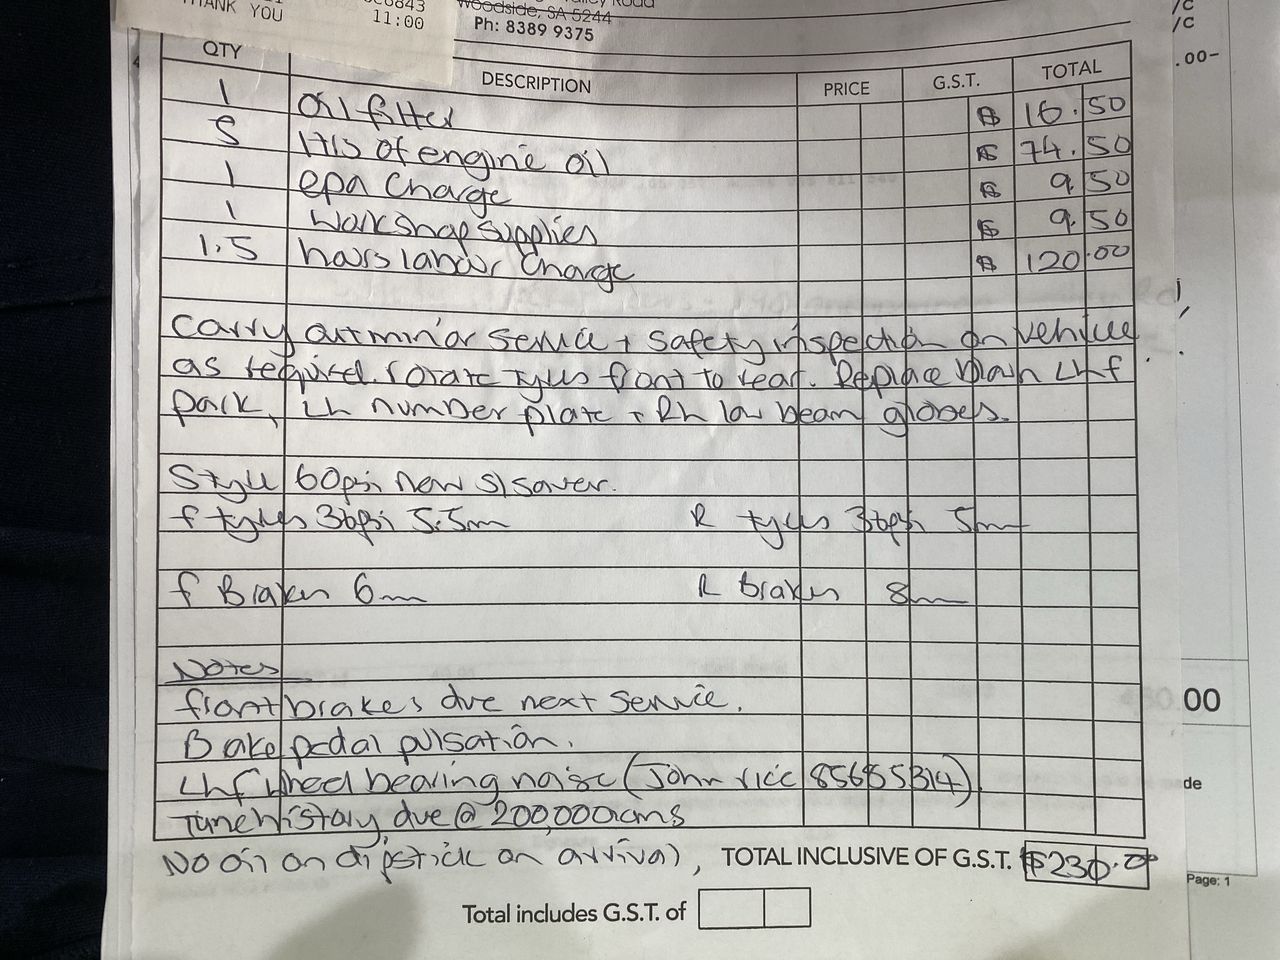 THANK YOU
11:00
Woodside, SA 5244
Ph: 8389 9375
/C
/C
.00-
QTY DESCRIPTION PRICE G.S.T. TOTAL
1 Oil filter $ 16.50
5 ltrs of engine oil $ 74.50
1 epa Charge $ 9.50
1 workshop supplies $ 9.50
1.5 hours labour Charge $ 120.00
Carry out minor service + safety inspection on vehicle
as required. rotate tyres front to rear. Replace LHf
park, LH number plate + RH low beam globes.
60psi new
f tyres 36psi 5.5mm R tyres 36psi 5mm
f Brakes 6mm R Brakes 8mm
Notes
front brakes due next service.
Bake pedal pulsation.
LHf wheel bearing noise (John rice 85685314)
due @ 200,000kms
No oil on dipstick on arrival, TOTAL INCLUSIVE OF G.S.T. $230.00
Total includes G.S.T. of
00
de
Page: 1